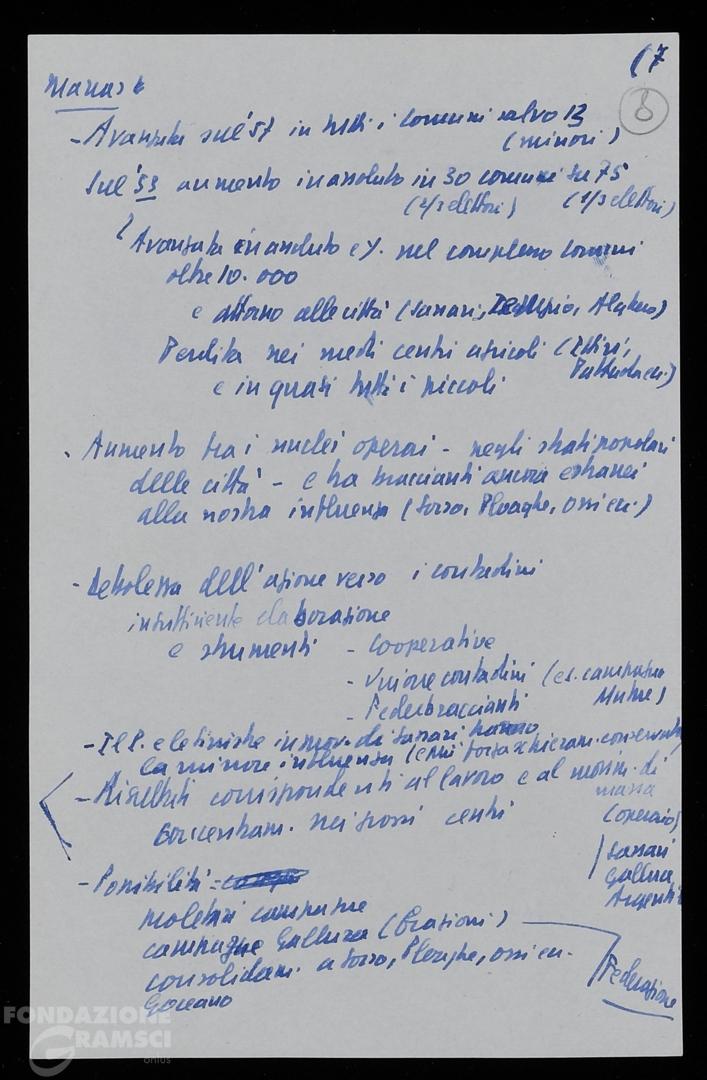 17
8
- Avanzata sul '57 in tutti i Comuni salvo 13
(minori)
Sul '53 aumento in assoluto in 30 comuni su 75
(2/3 elettori) (1/3 elettori)
Avanzata in assoluto e %. nel complesso Comuni
oltre 10.000
e attorno alle città (Sassari, Tempio, Alghero)
Perdita nei medi centri agricoli (Ittiri,
Pattada ecc.)
e in quasi tutti i piccoli
- Aumento tra i nuclei operai - negli strati popolari
delle città - e tra braccianti ancora estranei
alla nostra influenza (Sorso, Ploaghe, Ossi ecc.)
- Debolezza dell'azione verso i contadini
insufficiente elaborazione
e strumenti - Cooperative
- Unione contadini (es. campagna
Mutue)
- Federbraccianti
- Il P. e le sinistre in prov. di Sassari hanno
la minore influenza (e più forza schieram. conservat.
- Risultati corrispondenti al lavoro e al movim. di
massa
(operaio)
Concentram. nei grossi centri
Sassari
Gallura
Argentiera
- Possibilità =
campagne
campagne Gallura (Erasioni)
consolidam. a Sorso, Ploaghe, Ossi ecc.
Goceano
Federazione
FONDAZIONE
GRAMSCI
onlus